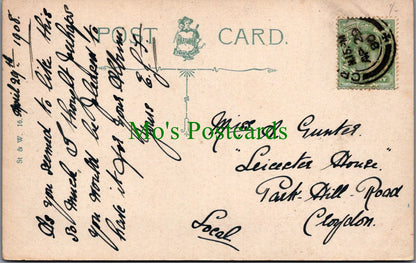 POST CARD.
April 29th 1908.
As you seemed to like this
so much, I thought perhaps
you would be pleased to
have it for your Album.
Yours E. J. J.
Miss A. Gunter.
"Leicester House."
Park Hill Road
Croydon.
Local
St & W. 16
Mo's Postcards